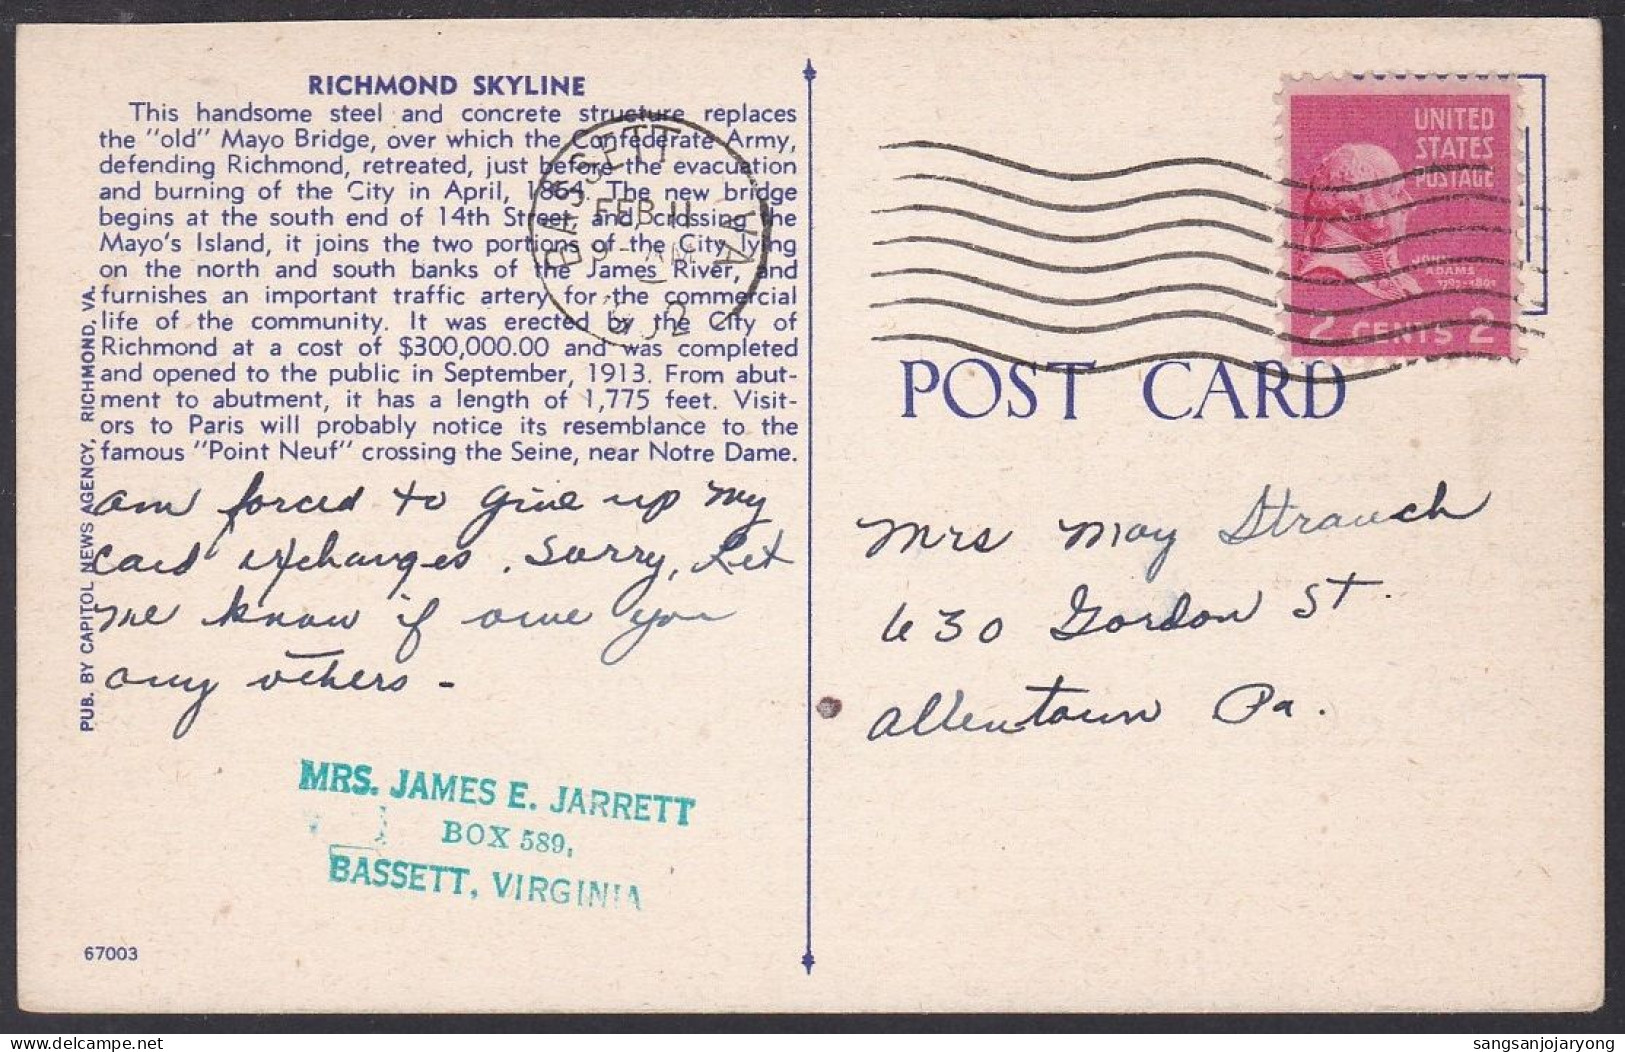 RICHMOND SKYLINE
This handsome steel and concrete structure replaces
the "old" Mayo Bridge, over which the Confederate Army,
defending Richmond, retreated, just before the evacuation
and burning of the City in April, 1864. The new bridge
begins at the south end of 14th Street, and, crossing the
Mayo's Island, it joins the two portions of the City lying
on the north and south banks of the James River, and
furnishes an important traffic artery for the commercial
life of the community. It was erected by the City of
Richmond at a cost of $300,000.00 and was completed
and opened to the public in September, 1913. From abut-
ment to abutment, it has a length of 1,775 feet. Visit-
ors to Paris will probably notice its resemblance to the
famous "Point Neuf" crossing the Seine, near Notre Dame.
PUB. BY CAPITOL NEWS AGENCY, RICHMOND, VA.
am forced to give up my
card exchanges. Sorry, Let
me know if owe you
any others -
MRS. JAMES E. JARRETT
BOX 589,
BASSETT, VIRGINIA
67003
BASSETT VA
FEB 11
9 - AM
UNITED
STATES
POSTAGE
JOHN
ADAMS
1797-1801
2 CENTS 2
POST CARD
Mrs May Strauch
630 Gordon St.
Allentown Pa.
delcampe.net
sangsanjojaryong